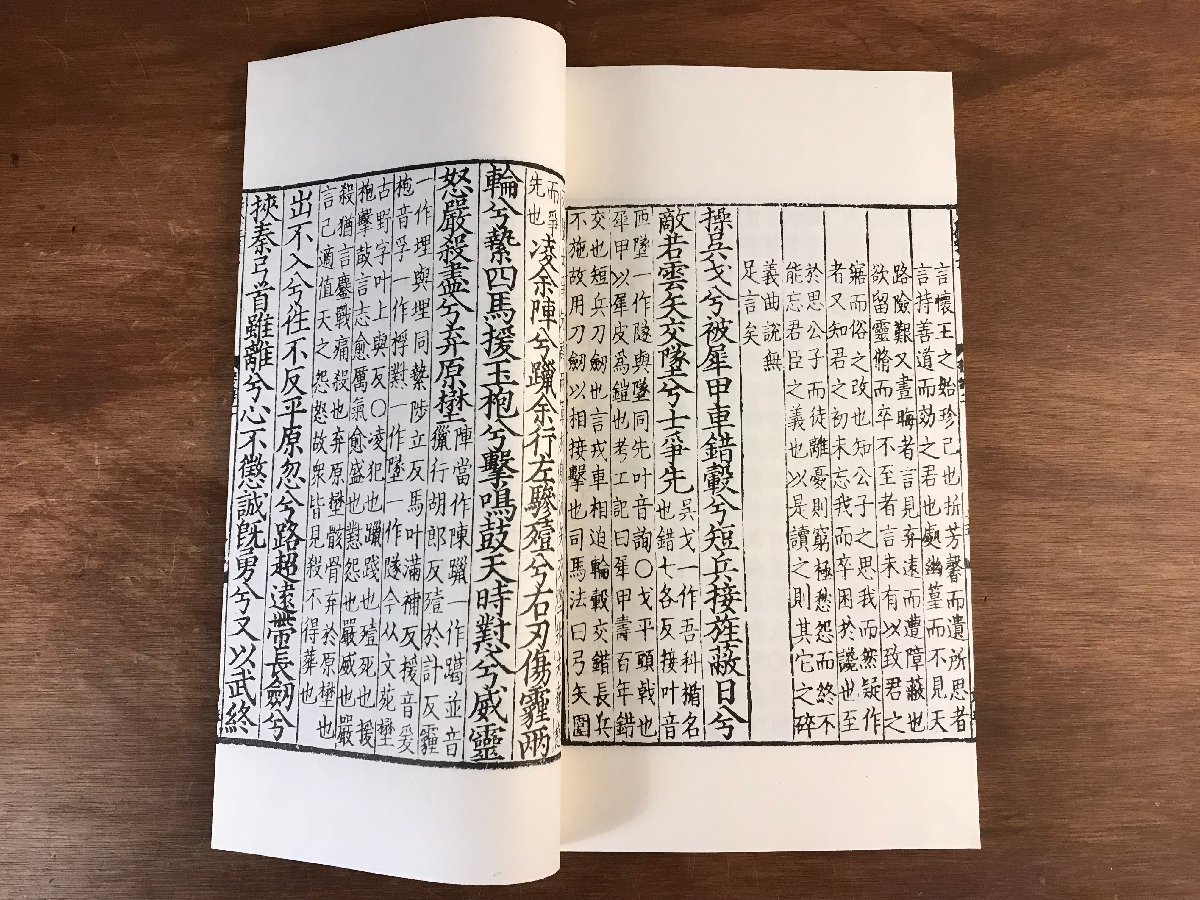 言懷王之始珍己也折芳馨而遺所思者
言持善道而効之君也處幽篁而不見天
路險艱又晝晦者言見弃遠而遭障蔽也
欲留靈脩而卒不至者言未有以致君之
寤而俗之改也知公子之思我而然疑作
者又知君之初未忘我而卒困於讒也至
於思公子而徒離憂則窮極愁怨而終不
能忘君臣之義也以是讀之則其它之碎
義曲說無
足言矣
操吳戈兮被犀甲車錯轂兮短兵接旌蔽日兮
敵若雲矢交墜兮士爭先
吳戈一作吾科楯名
也錯七各反接叶音
匝墜一作隧與墜同先叶音詢〇戈平頭戟也
犀甲以犀皮爲鎧也考工記曰犀甲壽百年錯
交也短兵刀劒也言戎車相迫輪轂交錯長兵
不施故用刀劒以相接擊也司馬法曰弓矢圍
而爭
先也
凌余陣兮躐余行左驂殪兮右刃傷霾兩
輪兮縶四馬援玉枹兮擊鳴鼓天時懟兮威靈
怒嚴殺盡兮弃原壄
陣當作陳躐一作躝並音
獵行胡郎反殪於計反霾
一作埋與埋同縶陟立反馬叶滿補反援音爰
枹音孚一作桴懟一作墜一作隊今从文苑壄
古野字叶上與反〇凌犯也躐踐也殪死也援
枹擊鼓言志愈厲氣愈盛也懟怨也嚴威也嚴
殺猶言鏖戰痛殺也弃原壄骸骨弃於原壄也
言己適值天之怨怒故衆皆見殺不得葬也
出不入兮往不反平原忽兮路超遠帶長劒兮
挾秦弓首雖離兮心不懲誠旣勇兮又以武終